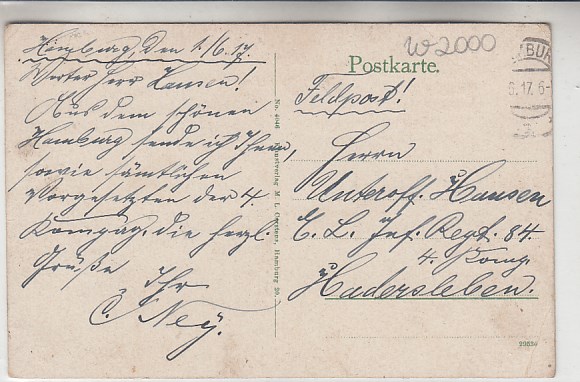 Hamburg, den 1./6.17.
Werter Herr Hansen!
Aus dem schönen
Hamburg sende ich Ihnen,
sowie sämtlichen
Vorgesetzten der 4.
Kompag. die herzl.
Grüße
Ihr
C. Ney.
No. 4046 Kunstverlag M. L. Carstens, Hamburg 20.
W2000
Postkarte.
Feldpost!
Herrn
Unteroff. Hansen
E. L. Inf. Regt. 84
4. Komp.
Hadersleben.
BUR
6.17. 6-